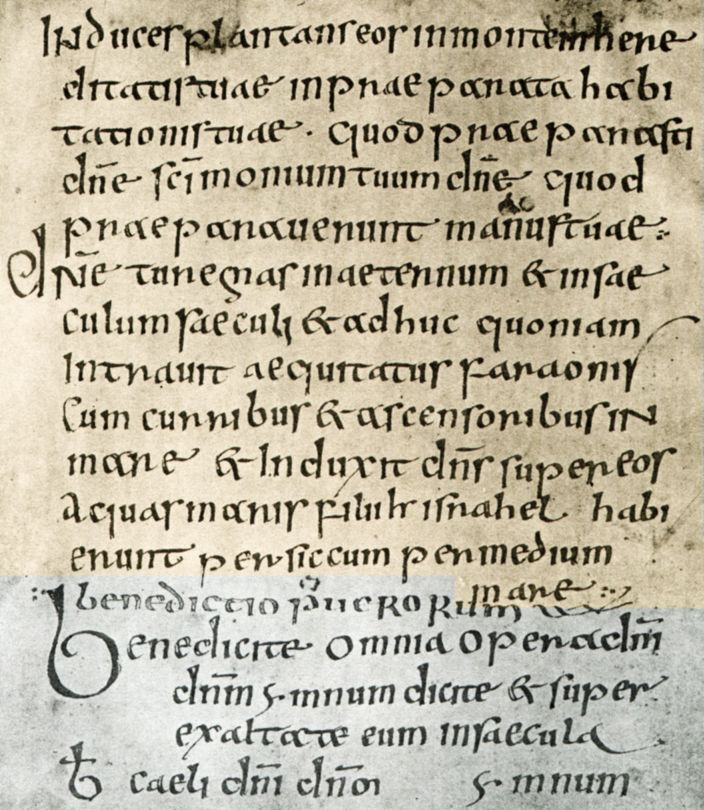 Induces plantans eos inmontem here
ditatis tuae inpraeparata habi
tationis tuae · quod praeparasti
dn̄e sc̄imonium tuum dn̄e quod
praeparauerunt manus tuae :·
Dn̄e tu regnas inaeternum & insae
culum saeculi & adhuc quoniam
Intrauit aequitatus faraonis
Cum curribus & ascensoribus IN
mare & Induxit dn̄s super eos
Aquas maris filii h israhel habi
erunt per siccum per medium
mare :·
:· benedictio puerorum
Benedicite omnia opera dn̄i
dn̄m ymnum dicite & super
exaltate eum insaecula
b caeli dn̄i dn̄o ymnum